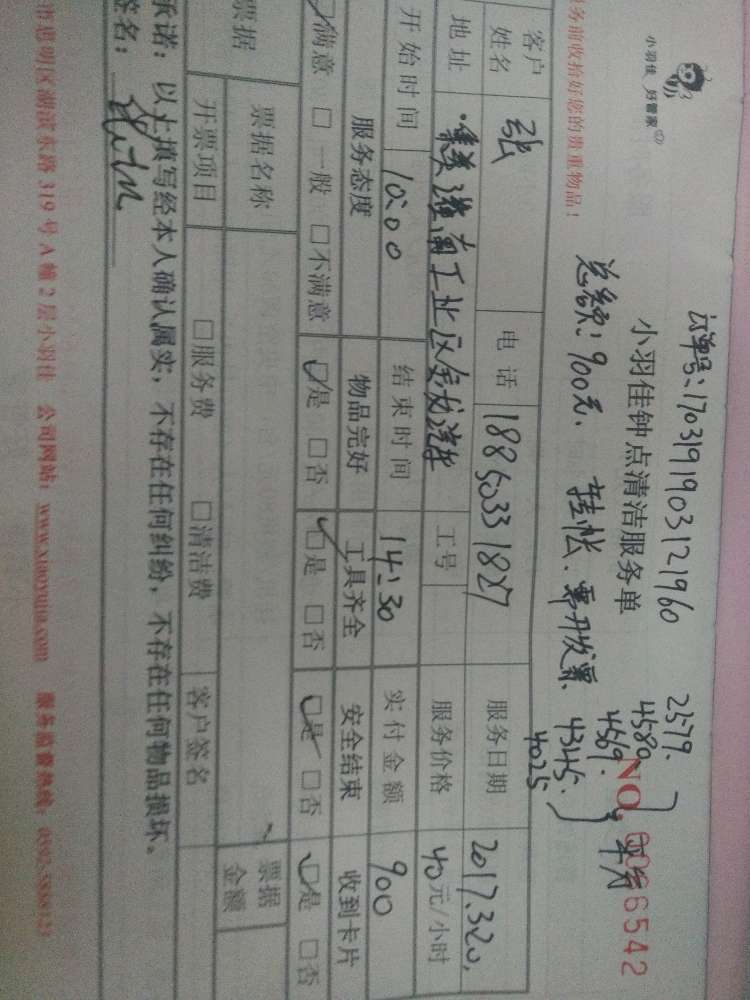 小羽佳 好管家
订单号:170319190312196​0
小羽佳钟点清洁服务单
NO. 0066542
2579.
4580
4569.
4345.
4025
平分
务前收拾好您的贵重物品!
总额:900元、挂帐、需开发票、
客户姓名 张 电话 18850331827 服务日期 2017.3.20.
地址 集美灌南工业区金龙汽车 工号 服务价格 40元/小时
开始时间 10:00 结束时间 14:30 实付金额 900
服务态度 物品完好 工具齐全 安全结束 收到卡片
☑满意 □一般 □不满意 ☑是 □否 ☑是 □否 ☑是 □否 ☑是 □否
票据 票据名称 票据金额
开票项目 □服务费 □清洁费 客户签名
承诺:以上填写经本人确认属实,不存在任何纠纷,不存在任何物品损坏。
签名:
市思明区湖滨东路319号A幢2层小羽佳 公司网站:www.xiaoyujia.com 服务监督热线:0592-5888123